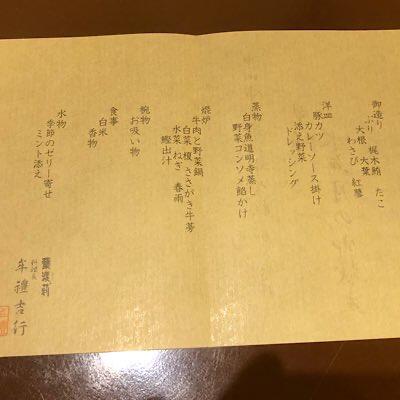 御造り
ぶり 梶木鮪 たこ
大根 大葉 紅蓼
わさび
洋皿
豚カツ カレーソース掛け
添え野菜
ドレッシング
蒸物
白身魚道明寺蒸し
野菜コンソメ餡かけ
焜炉
牛肉と野菜鍋
白菜 榎 ささがき牛蒡
水菜 ねぎ 春雨
鰹出汁
椀物
お吸い物
食事
白米
香物
水物
季節のゼリー寄せ
ミント添え
料理長